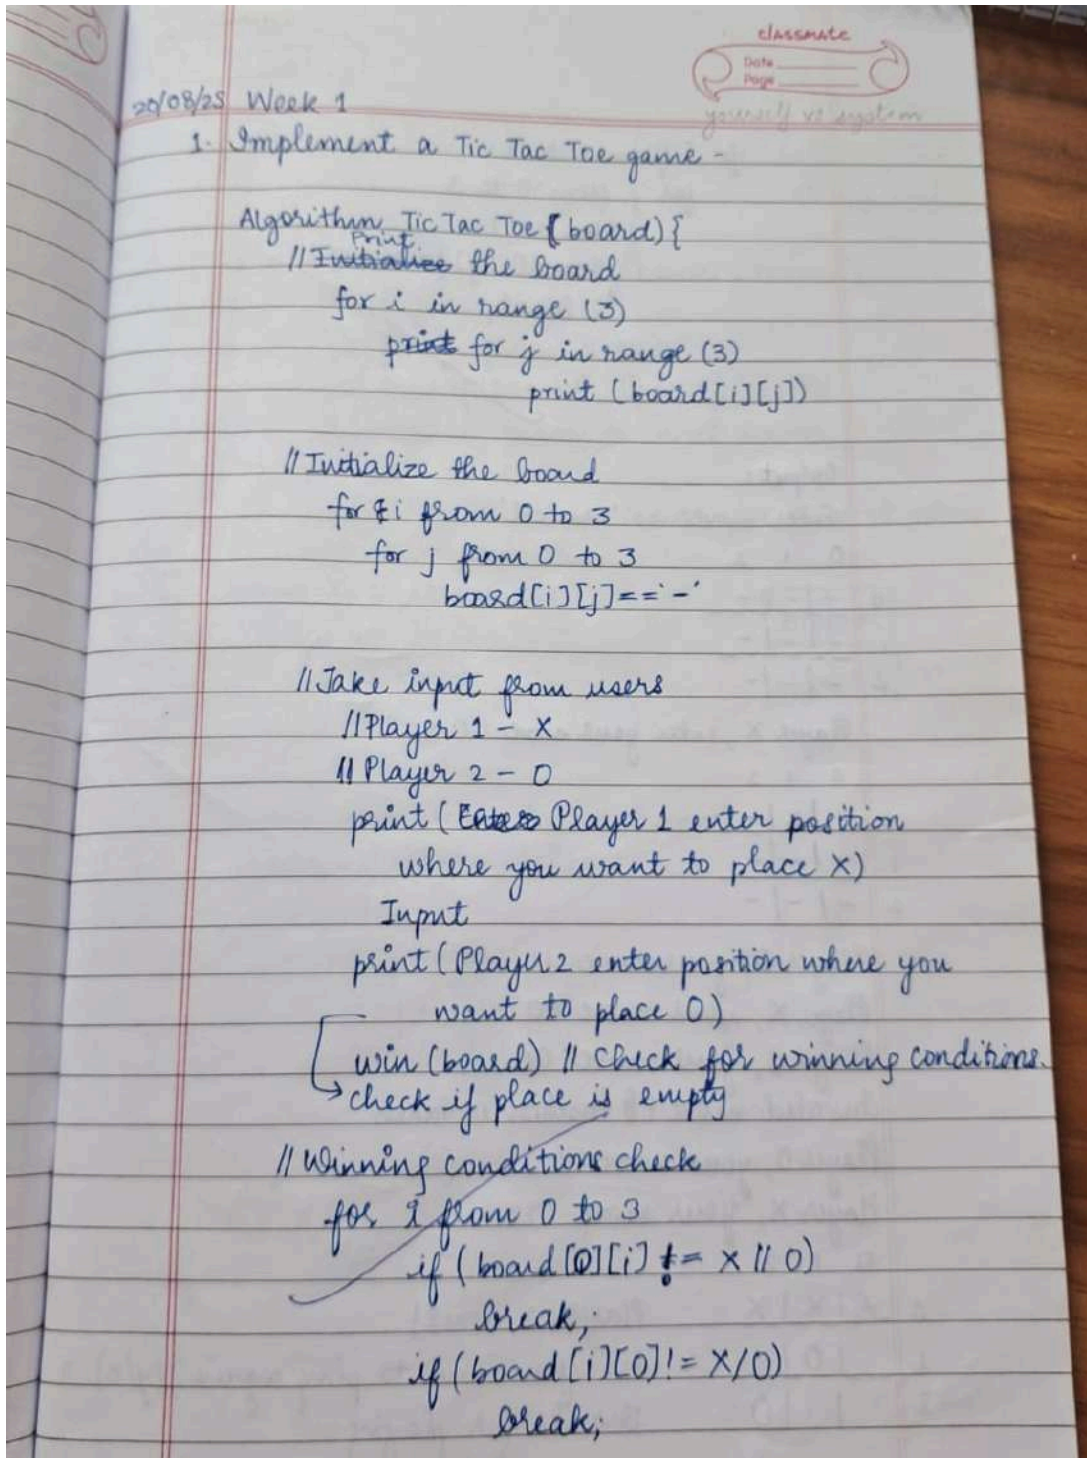 classmate
Date
Page
yourself vs system
20/08/25 Week 1
1. Implement a Tic Tac Toe game -
Algorithm Tic Tac Toe (board) {
Print
// Initialize the board
for i in range (3)
print for j in range (3)
print (board[i][j])
// Initialize the board
for i from 0 to 3
for j from 0 to 3
board[i][j]=='-'
// Take input from users
// Player 1 - X
// Player 2 - O
print ( Enter Player 1 enter position
where you want to place X)
Input
print (Player 2 enter position where you
want to place O)
win (board) // Check for winning conditions.
check if place is empty
// Winning conditions check
for i from 0 to 3
if (board[0][i] != X || O)
break;
if (board[i][0] != X/O)
break;